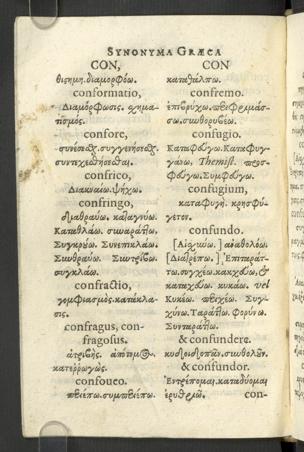 SYNONYMA GRÆCA
CON,
θισημη. διαμορφόω.
conformatio,
Διαμόρφωσις. χημα-
τισμός.
confore,
συνέσεσθαι. συγγενήσεσθαι.
συντχεθήσεσθαι.
confrico,
Διακναίω. ψήχω.
confringo,
διαθραύω. καταγνύω.
Καταθλάω. συναράττω.
Συγκρούω. Συνεπικλάω.
Συνθραύω. Συντρίβω.
συγκλάω.
confractio,
γομφιασμός. κατάκλα-
σις.
confragus, con-
fragosus.
ἀτριβής. ἀπότομος.
κατεῤῥωγώς.
confoueo.
περιέπω. συμπεριέπω.
CON
καταθάλπω.
confremo.
ἐπιβρύχω. περιφριμάσ-
σω. συνθορυβέω.
confugio.
Καταφεύγω. Καταφυγ-
γάνω, Themist. προσ-
φεύγω. Συμφεύγω.
confugium,
καταφυγή. κρησφύ-
γετον.
confundo.
[Αἰσχύνω.] αἰσθολόω.
[Διατρέπω.] Ἐπιταράτ-
τω. συγχέω. κακχεύω, &
καταχεύω. κυκάω. vel
Κυκέω. περιχέω. Συγ-
χύνω. Ταράττω. Φορύνω.
Συνταράττω.
& confundere.
συμβολῶν.
& confundor.
Ἐντρέπομαι. καταδύομαι
ἐρυθριῶ.
con-